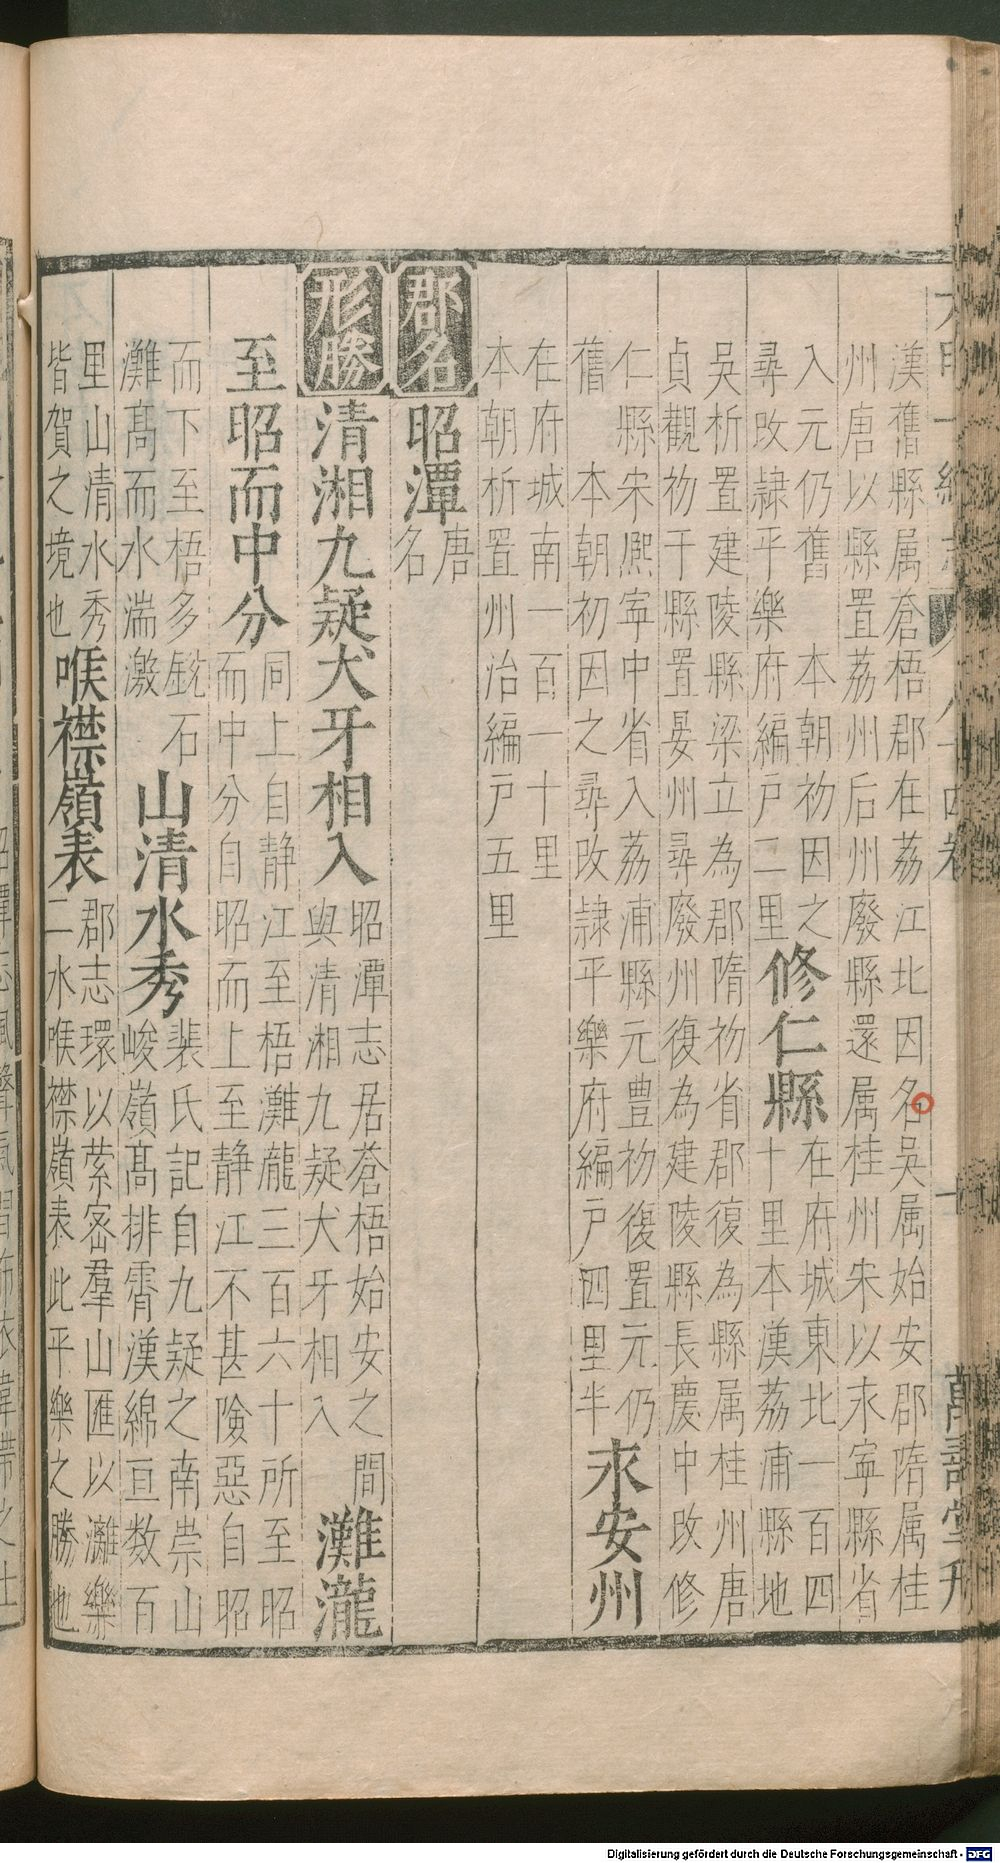 漢舊縣属蒼梧郡在荔江北因名吳属始安郡隋属桂
州唐以縣置荔州后州廢縣還属桂州宋以永寧縣省
入元仍舊　本朝初因之
尋改隷平樂府編户二里
修仁縣
在府城東北一百四
十里本漢荔浦縣地
吳析置建陵縣梁立為郡隋初省郡復為縣属桂州唐
貞觀初于縣置晏州尋廢州復為建陵縣長慶中改修
仁縣宋熈寧中省入荔浦縣元豊初復置元仍
舊　本朝初因之尋改隷平樂府編户四里半
永安州
在府城南一百一十里
本朝析置州治編户五里
郡名
昭潭
唐
名
形勝
清湘九疑犬牙相入
昭潭志居蒼梧始安之間
與清湘九疑犬牙相入
灘瀧
至昭而中分
同上自静江至梧灘瀧三百六十所至昭
而中分自昭而上至静江不甚險惡自昭
而下至梧多銳石
灘髙而水湍激
山清水秀
裴氏記自九疑之南崇山
峻嶺髙排霄漢綿亘数百
里山清水秀
皆賀之境也
喉襟嶺表
郡志環以萦宻羣山匯以灕樂
二水喉襟嶺表此平樂之勝也
萬壽堂刋
Digitalisierung gefördert durch die Deutsche Forschungsgemeinschaft - DFG